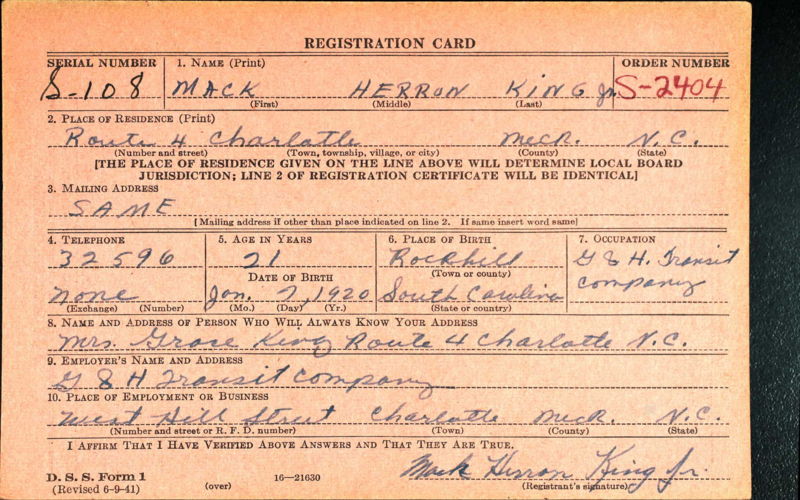 REGISTRATION CARD
SERIAL NUMBER 1. NAME (Print) ORDER NUMBER
S-108 MACK HERRON KING Jr. S-2404
(First) (Middle) (Last)
2. PLACE OF RESIDENCE (Print)
Route 4 Charlotte Meck. N.C.
(Number and street) (Town, township, village, or city) (County) (State)
[THE PLACE OF RESIDENCE GIVEN ON THE LINE ABOVE WILL DETERMINE LOCAL BOARD
JURISDICTION; LINE 2 OF REGISTRATION CERTIFICATE WILL BE IDENTICAL]
3. MAILING ADDRESS
SAME
[Mailing address if other than place indicated on line 2. If same insert word same]
4. TELEPHONE 5. AGE IN YEARS 6. PLACE OF BIRTH 7. OCCUPATION
32596 21 Rockhill G & H. Transit
DATE OF BIRTH (Town or county) company
none Jan. 7, 1920 South Carolina
(Exchange) (Number) (Mo.) (Day) (Yr.) (State or country)
8. NAME AND ADDRESS OF PERSON WHO WILL ALWAYS KNOW YOUR ADDRESS
Mrs. Grace King Route 4 Charlotte N.C.
9. EMPLOYER'S NAME AND ADDRESS
G & H Transit company
10. PLACE OF EMPLOYMENT OR BUSINESS
West Hill Street Charlotte Meck. N.C.
(Number and street or R. F. D. number) (Town) (County) (State)
I AFFIRM THAT I HAVE VERIFIED ABOVE ANSWERS AND THAT THEY ARE TRUE.
Mack Herron King Jr.
D. S. S. Form 1
(Revised 6-9-41) (over) 16—21630 (Registrant's signature)